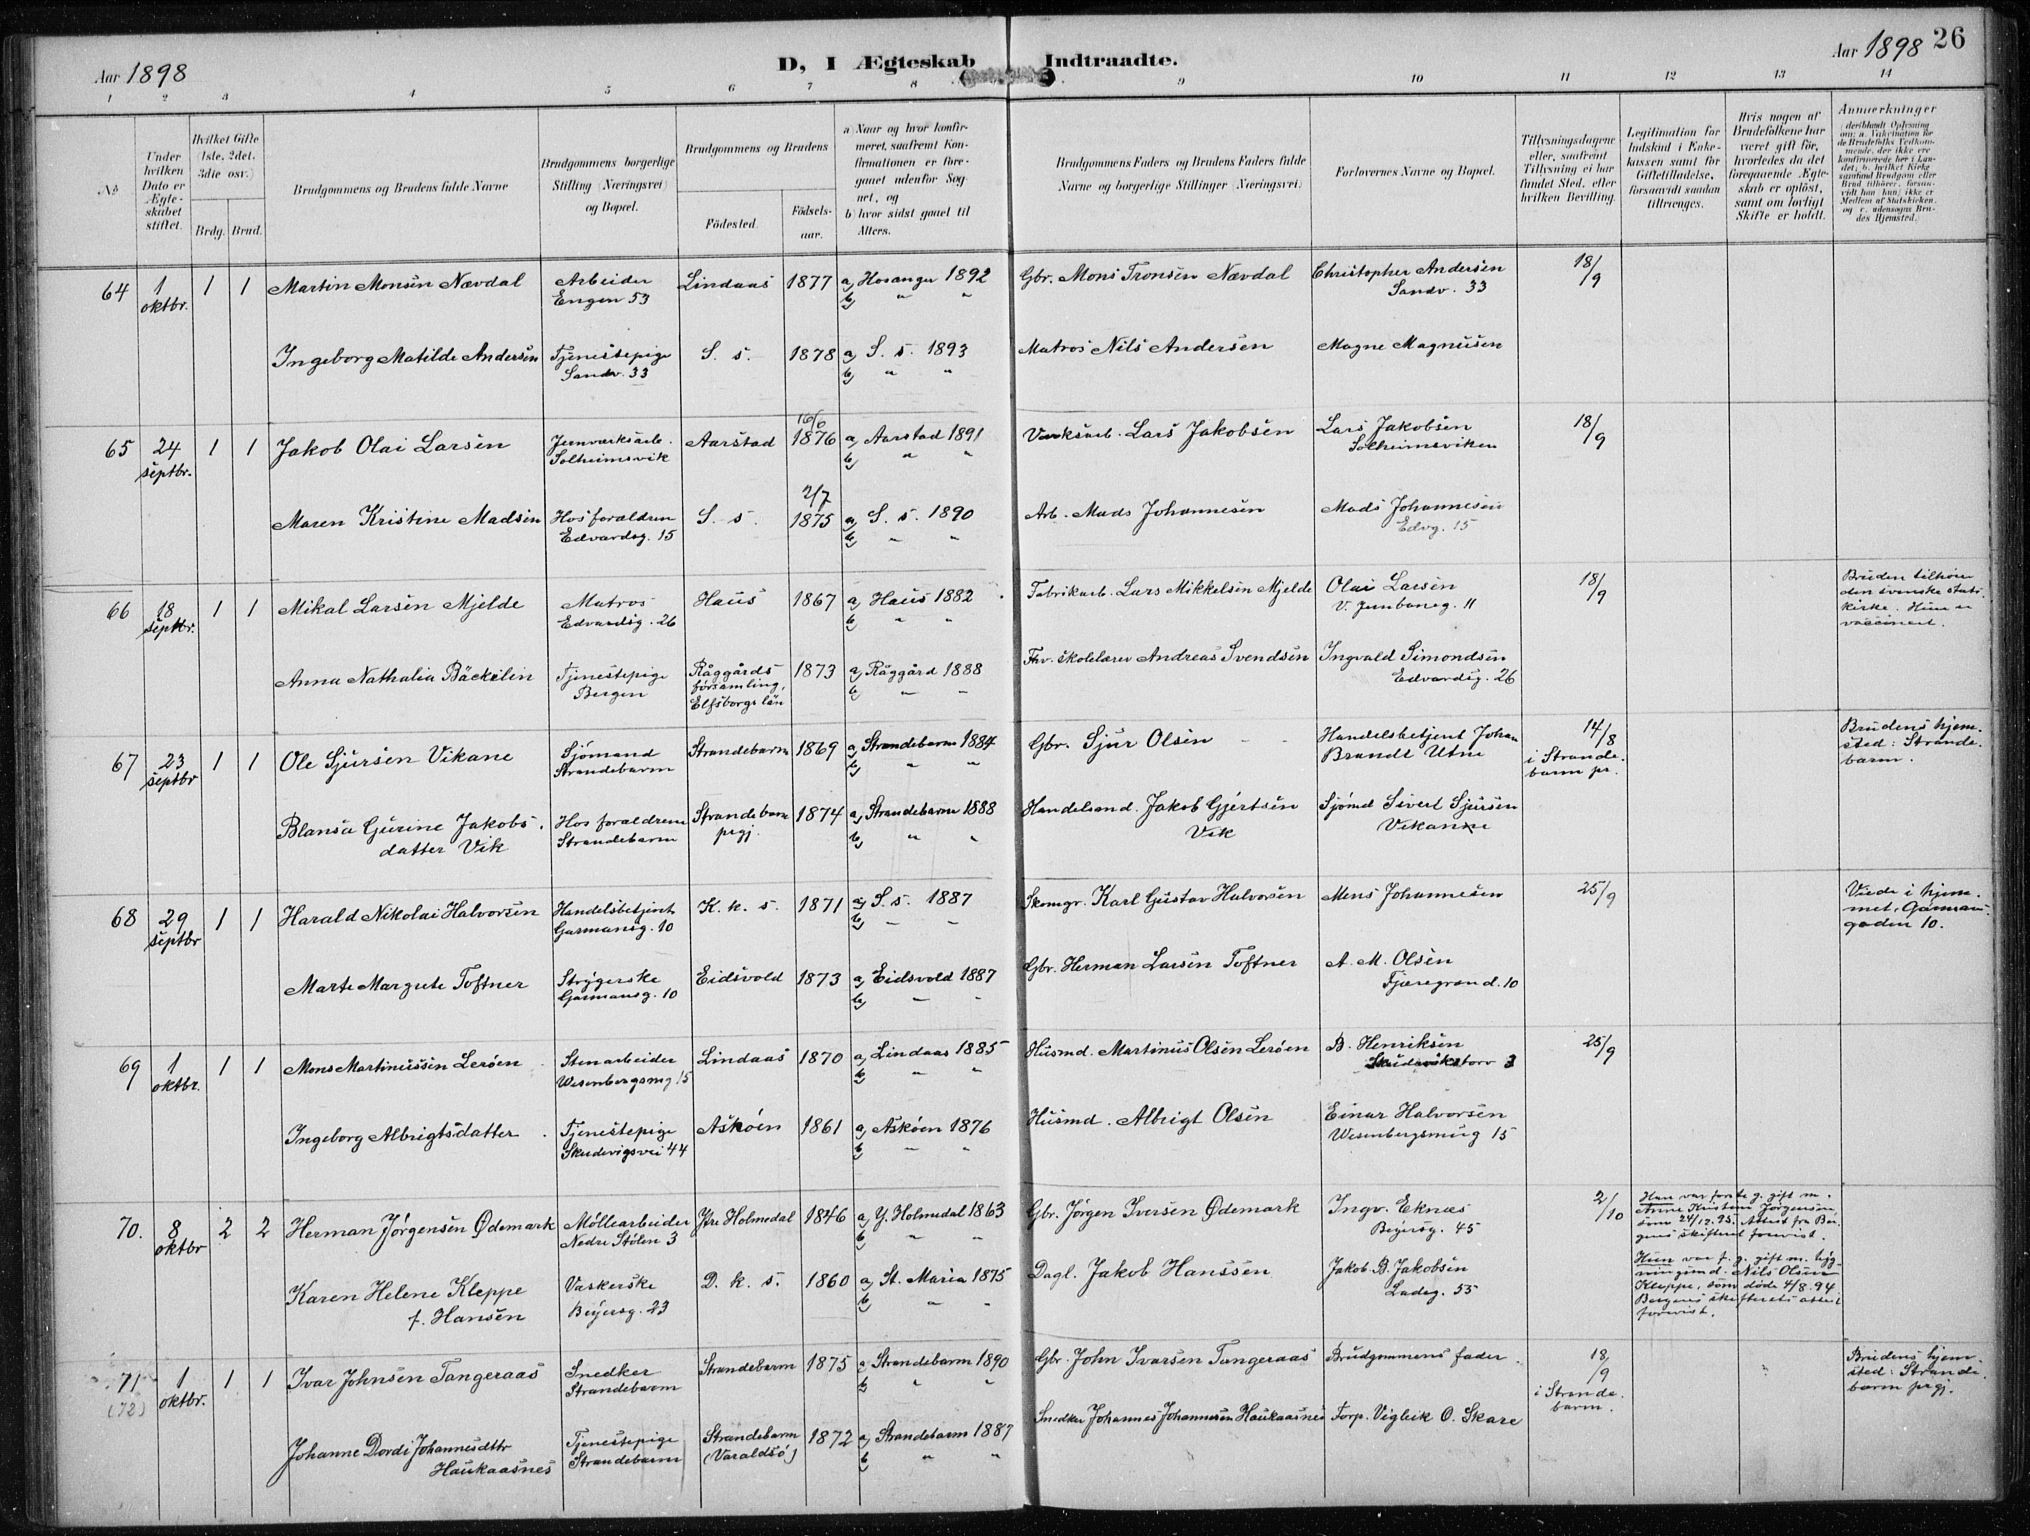 Aar 1898
D, I Ægteskab Indtraadte.
Aar 1898 26
1 2 3 4 5 6 7 8 9 10 11 12 13 14
No
Under hvilken Dato er Ægteskabet stiftet.
Hvilket Gifte (1ste, 2det, 3die osv.)
Brdg. Brud.
Brudgommens og Brudens fulde Navne
Brudgommens borgerlige Stilling (Næringsvei) og Bopæl.
Brudgommens og Brudens
Födested.
Födselsaar.
a) Naar og hvor konfirmeret, saafremt Konfirmationen er foregaaet udenfor Sognet, og
b) hvor sidst gaaet til Alters.
Brudgommens Faders og Brudens Faders fulde Navne og borgerlige Stillinger (Næringsvei)
Forlovernes Navne og Bopæl.
Tillysningsdagene eller, saafremt Tillysning ei har fundet Sted, efter hvilken Bevilling.
Legitimation for Indskud i Enkekassen samt for Giftetilladelse, forsaavidt saadan tiltrænges.
Hvis nogen af Brudefolkene har været gift för, hvorledes da det foregaaende Ægteskab er oplöst, samt om lovligt Skifte er holdt.
Anmerkninger
64 1 oktbr. 1 1 Martin Monsen Nævdal Arbeider Engen 53 Lindaas 1877 a) Hosanger 1892 b) " " Gbr. Mons Tronsen Nævdal Christopher Andersen Sandv. 33 18/9
Ingeborg Matilde Andersen Tjenestepige Sandv. 33 S. s. 1878 a) S. s. 1893 b) " " Matros Nils Andersen Magne Magnusen
65 24 septbr. 1 1 Jakob Olai Larsen Jernværksarb. Solheimsvik Aarstad 16/6 1876 a) Aarstad 1891 b) " " Verksarb. Lars Jakobsen Lars Jakobsen Solheimsviken 18/9
Maren Kristine Madsen Hos foraldrene Edvardsg. 15 S. s. 2/7 1875 a) S. s. 1890 b) " " Arb. Mads Johannesen Mads Johannesen Edvg. 15
66 18 septbr. 1 1 Mikal Larsen Mjelde Matros Edvardsg. 26 Haus 1867 a) Haus 1882 b) " " Fabrikarb. Lars Mikkelsen Mjelde Olai Larsen V. Jernbaneg. 11 18/9 Bruden tilhører den svenske statskirke. Hun er vaccineret.
Anna Nathalia Bäckelin Tjenestepige Bergen Råggårds församling, Elfsborgs län 1873 a) Råggård 1888 b) " " Fhv. skolelærer Andreas Svendsen Ingvald Simondsen Edvardsg. 26
67 23 septbr 1 1 Ole Sjursen Vikane Sjømand Strandebarm Strandebarm 1869 a) Strandebarm 1884 b) " " Gbr. Sjur Olsen Handelsbetjent Johan Brandt Utne 14/8 i Strandebarm pr. Brudens hjemsted: Strandebarm.
Blansa Gurine Jakobsdatter Vik Hos foraldrene Strandebarm Strandebarm prgj. 1874 a) Strandebarm 1888 b) " " Handelsmd. Jakob Gjertsen Vik Sjømd Sivert Sjursen Vikanne
68 29 septbr 1 1 Harald Nikolai Halvorsen Handelsbetjent Garmansg. 10 K. k. s. 1871 a) S. s. 1887 b) " " Skomgr. Karl Gustav Halvorsen Mens Johannesen 25/9 Viede i hjemmet, Garmansgaden 10.
Marte Margrete Toftner Strygerske Garmansg. 10 Eidsvold 1873 a) Eidsvold 1887 b) " " Gbr. Herman Larsen Toftner A. M. Olsen Fjæregrand. 10
69 1 oktbr. 1 1 Mons Martinussen Lerøen Stenarbeider Wesenbergsmg 15 Lindaas 1870 a) Lindaas 1885 b) " " Husmd. Martinus Olsen Lerøen B. Henriksen Skudevikstorv 3 25/9
Ingeborg Albrigtsdatter Tjenestepige Skudevigsvei 44 Askøen 1861 a) Askøen 1876 b) " " Husmd. Albrigt Olsen Einar Halvorsen Wesenbergsmug 15
70. 8 oktbr 2 2 Herman Jørgensen Ødemark Møllearbeider Nedre Stølen 3 Ytre Holmedal 1846 a) Y. Holmedal 1863 b) " " Gbr. Jørgen Iversen Ødemark Ingv. Eknæs Beyersg. 45 2/10 Han var forste g. gift m. Anne Kristine Jørgensen, som 24/12.93. Attest fra Bergens skifteret forevist.
Karen Helene Kleppe f. Hansen Vaskerske Beyersg. 23 D. k. s. 1860 a) St. Maria 1875 b) " " Dagl. Jakob Hanssen Jakob B. Jakobsen Ladeg. 55 Hun var f. g. gift m. bygningsmd. Nils Olsen Kleppe, som døde 4/8.94 Bergens skifterets attest forevist.
71 (72) 1 oktbr. 1 1 Ivar Johnsen Tangeraas Snedker Strandebarm Strandebarm 1875 a) Strandebarm 1890 b) " " Gbr. John Ivarsen Tangeraas Brudgommens fader. 18/9 i Strandebarm. Brudens hjemsted: Strandebarm prgj.
Johanne Dordi Johannesdttr Haukaasnes Tjenestepige Strandebarm Strandebarm (Varaldsø) 1872 a) Strandebarm 1887 b) " " Snedker Johannes Johannesen Haukaasnes Torp. Vigleik O. Skare